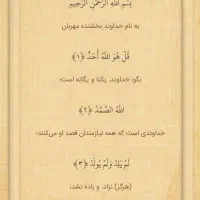 بِسْمِ اللَّهِ الرَّحْمَنِ الرَّحِيمِ
به نام خداوند بخشنده مهربان
قُلْ هُوَ اللَّهُ أَحَدٌ ﴿۱﴾
بگو: خداوند، یکتا و یگانه است؛
اللَّهُ الصَّمَدُ ﴿۲﴾
خداوندی است که همه نیازمندان قصد او می‌کنند؛
لَمْ يَلِدْ وَلَمْ يُولَدْ ﴿۳﴾
(هرگز) نزاد، و زاده نشد،